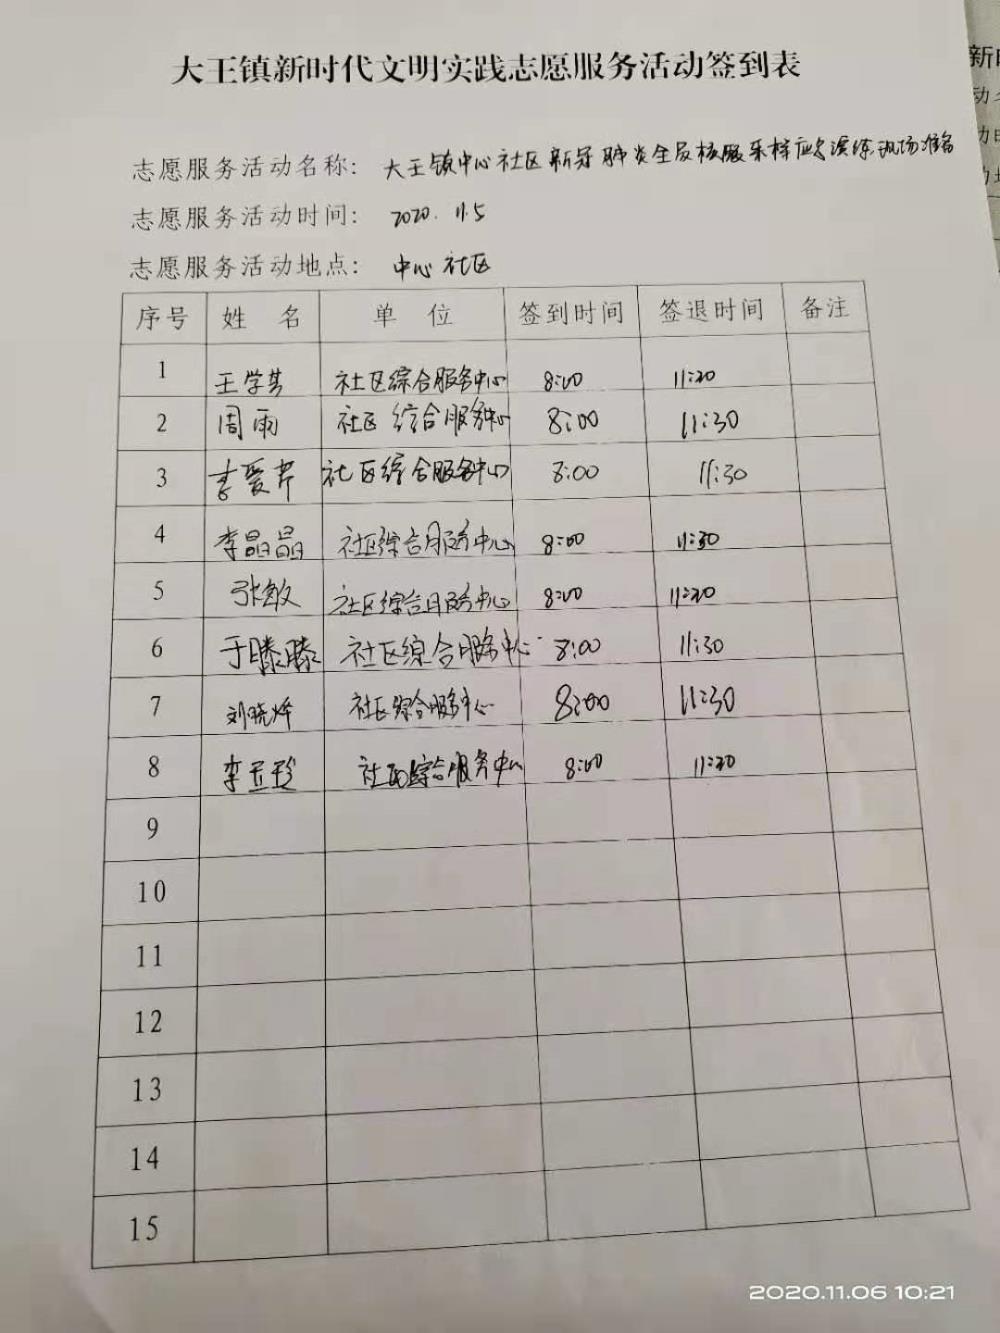 大王镇新时代文明实践志愿服务活动签到表
志愿服务活动名称: 大王镇中心社区新冠肺炎全员核酸采样应急演练现场准备
志愿服务活动时间: 2020.11.5
志愿服务活动地点: 中心社区
序号 姓名 单位 签到时间 签退时间 备注
1 王学芸 社区综合服务中心 8:00 11:30
2 周雨 社区综合服务中心 8:00 11:30
3 李爱芹 社区综合服务中心 8:00 11:30
4 李晶晶 社区综合服务中心 8:00 11:30
5 张敏 社区综合服务中心 8:00 11:30
6 于滕滕 社区综合服务中心 8:00 11:30
7 刘晓烨 社区综合服务中心 8:00 11:30
8 李玉珍 社区综合服务中心 8:00 11:30
9
10
11
12
13
14
15
2020.11.06 10:21